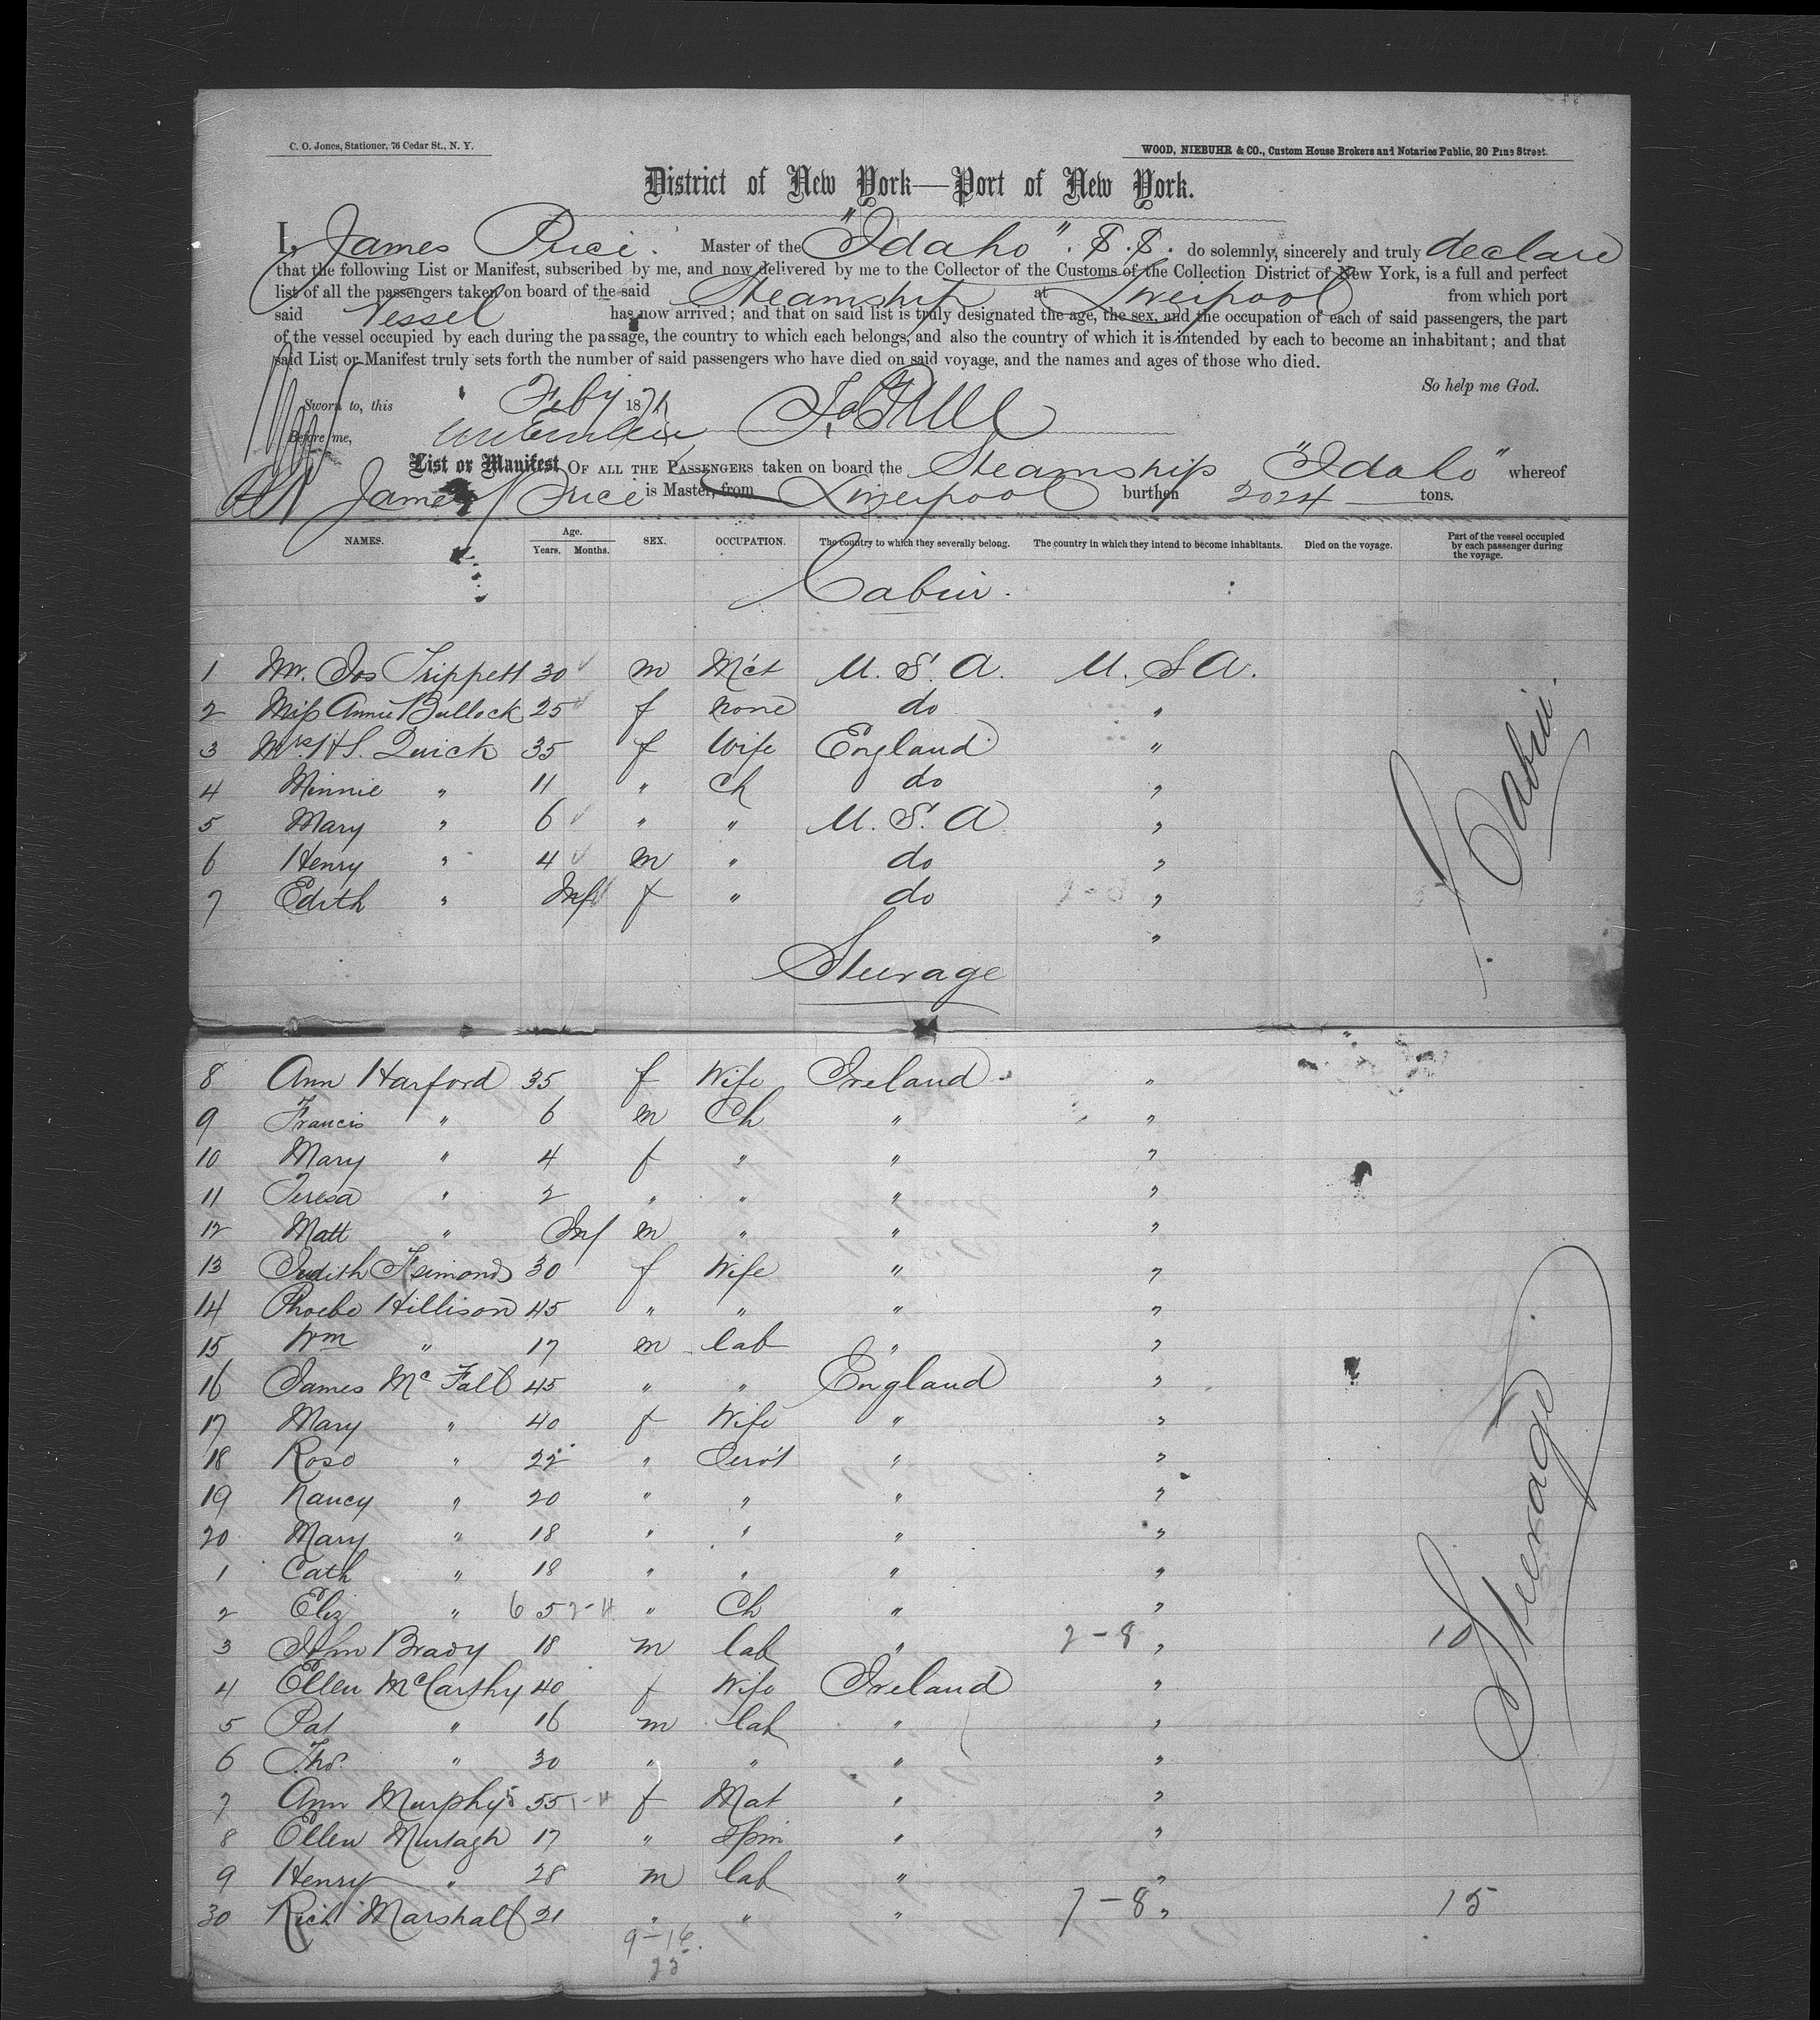 C. O. Jones, Stationer, 76 Cedar St., N. Y.
WOOD, NIEBUHR & CO., Custom House Brokers and Notaries Public, 20 Pine Street.
District of New York—Port of New York.
I, James Price Master of the "Idaho" S.S. do solemnly, sincerely and truly declare
that the following List or Manifest, subscribed by me, and now delivered by me to the Collector of the Customs of the Collection District of New York, is a full and perfect
list of all the passengers taken on board of the said Steamship at Liverpool from which port
said Vessel has now arrived; and that on said list is truly designated the age, the sex, and the occupation of each of said passengers, the part
of the vessel occupied by each during the passage, the country to which each belongs, and also the country of which it is intended by each to become an inhabitant; and that
said List or Manifest truly sets forth the number of said passengers who have died on said voyage, and the names and ages of those who died.
So help me God.
Sworn to, this Feby 187
Before me,
List or Manifest OF ALL THE PASSENGERS taken on board the Steamship "Idaho" whereof
James Price is Master, from Liverpool burthen 2024 tons.
NAMES. Age. Years. Months. SEX. OCCUPATION. The country to which they severally belong. The country in which they intend to become inhabitants. Died on the voyage. Part of the vessel occupied by each passenger during the voyage.
Cabin.
1 Mr. Jos Trippett 30 m M'ct U. S. A. U. S A.
2 Miss Annie Bullock 25 f none do "
3 Mrs H S. Quick 35 f Wife England "
4 Minnie " 11 " Ch do "
5 Mary " 6 " " U. S. A "
6 Henry " 4 m " do "
7 Edith " Inf f " do "
"
Cabin.
Steerage
8 Ann Harford 35 f Wife Ireland "
9 Francis " 6 m Ch " "
10 Mary " 4 f " " "
11 Teresa " 2 " " " "
12 Matt " Inf m " " "
13 Judith 30 f Wife " "
14 Phoebe Hillison 45 " " " "
15 Wm " 17 m lab " "
16 James McFall 45 " " England "
17 Mary " 40 f Wife " "
18 Rose " 22 " Serv't " "
19 Nancy " 20 " " " "
20 Mary " 18 " " " "
1 Cath " 18 " " " "
2 Eliz " 6 5 2-4 " Ch " "
3 John Brady 18 m lab " 7-8 " 10
4 Ellen McCarthy 40 f Wife Ireland "
5 Pat " 16 m lab " "
6 Thos. " 30 " " " "
7 Ann Murphy 55 f Mat " "
8 Ellen Murtagh 17 " Spin " "
9 Henry " 28 m lab " "
30 Rich Marshall 21 " " " 7-8 " 15
Steerage
9-16.